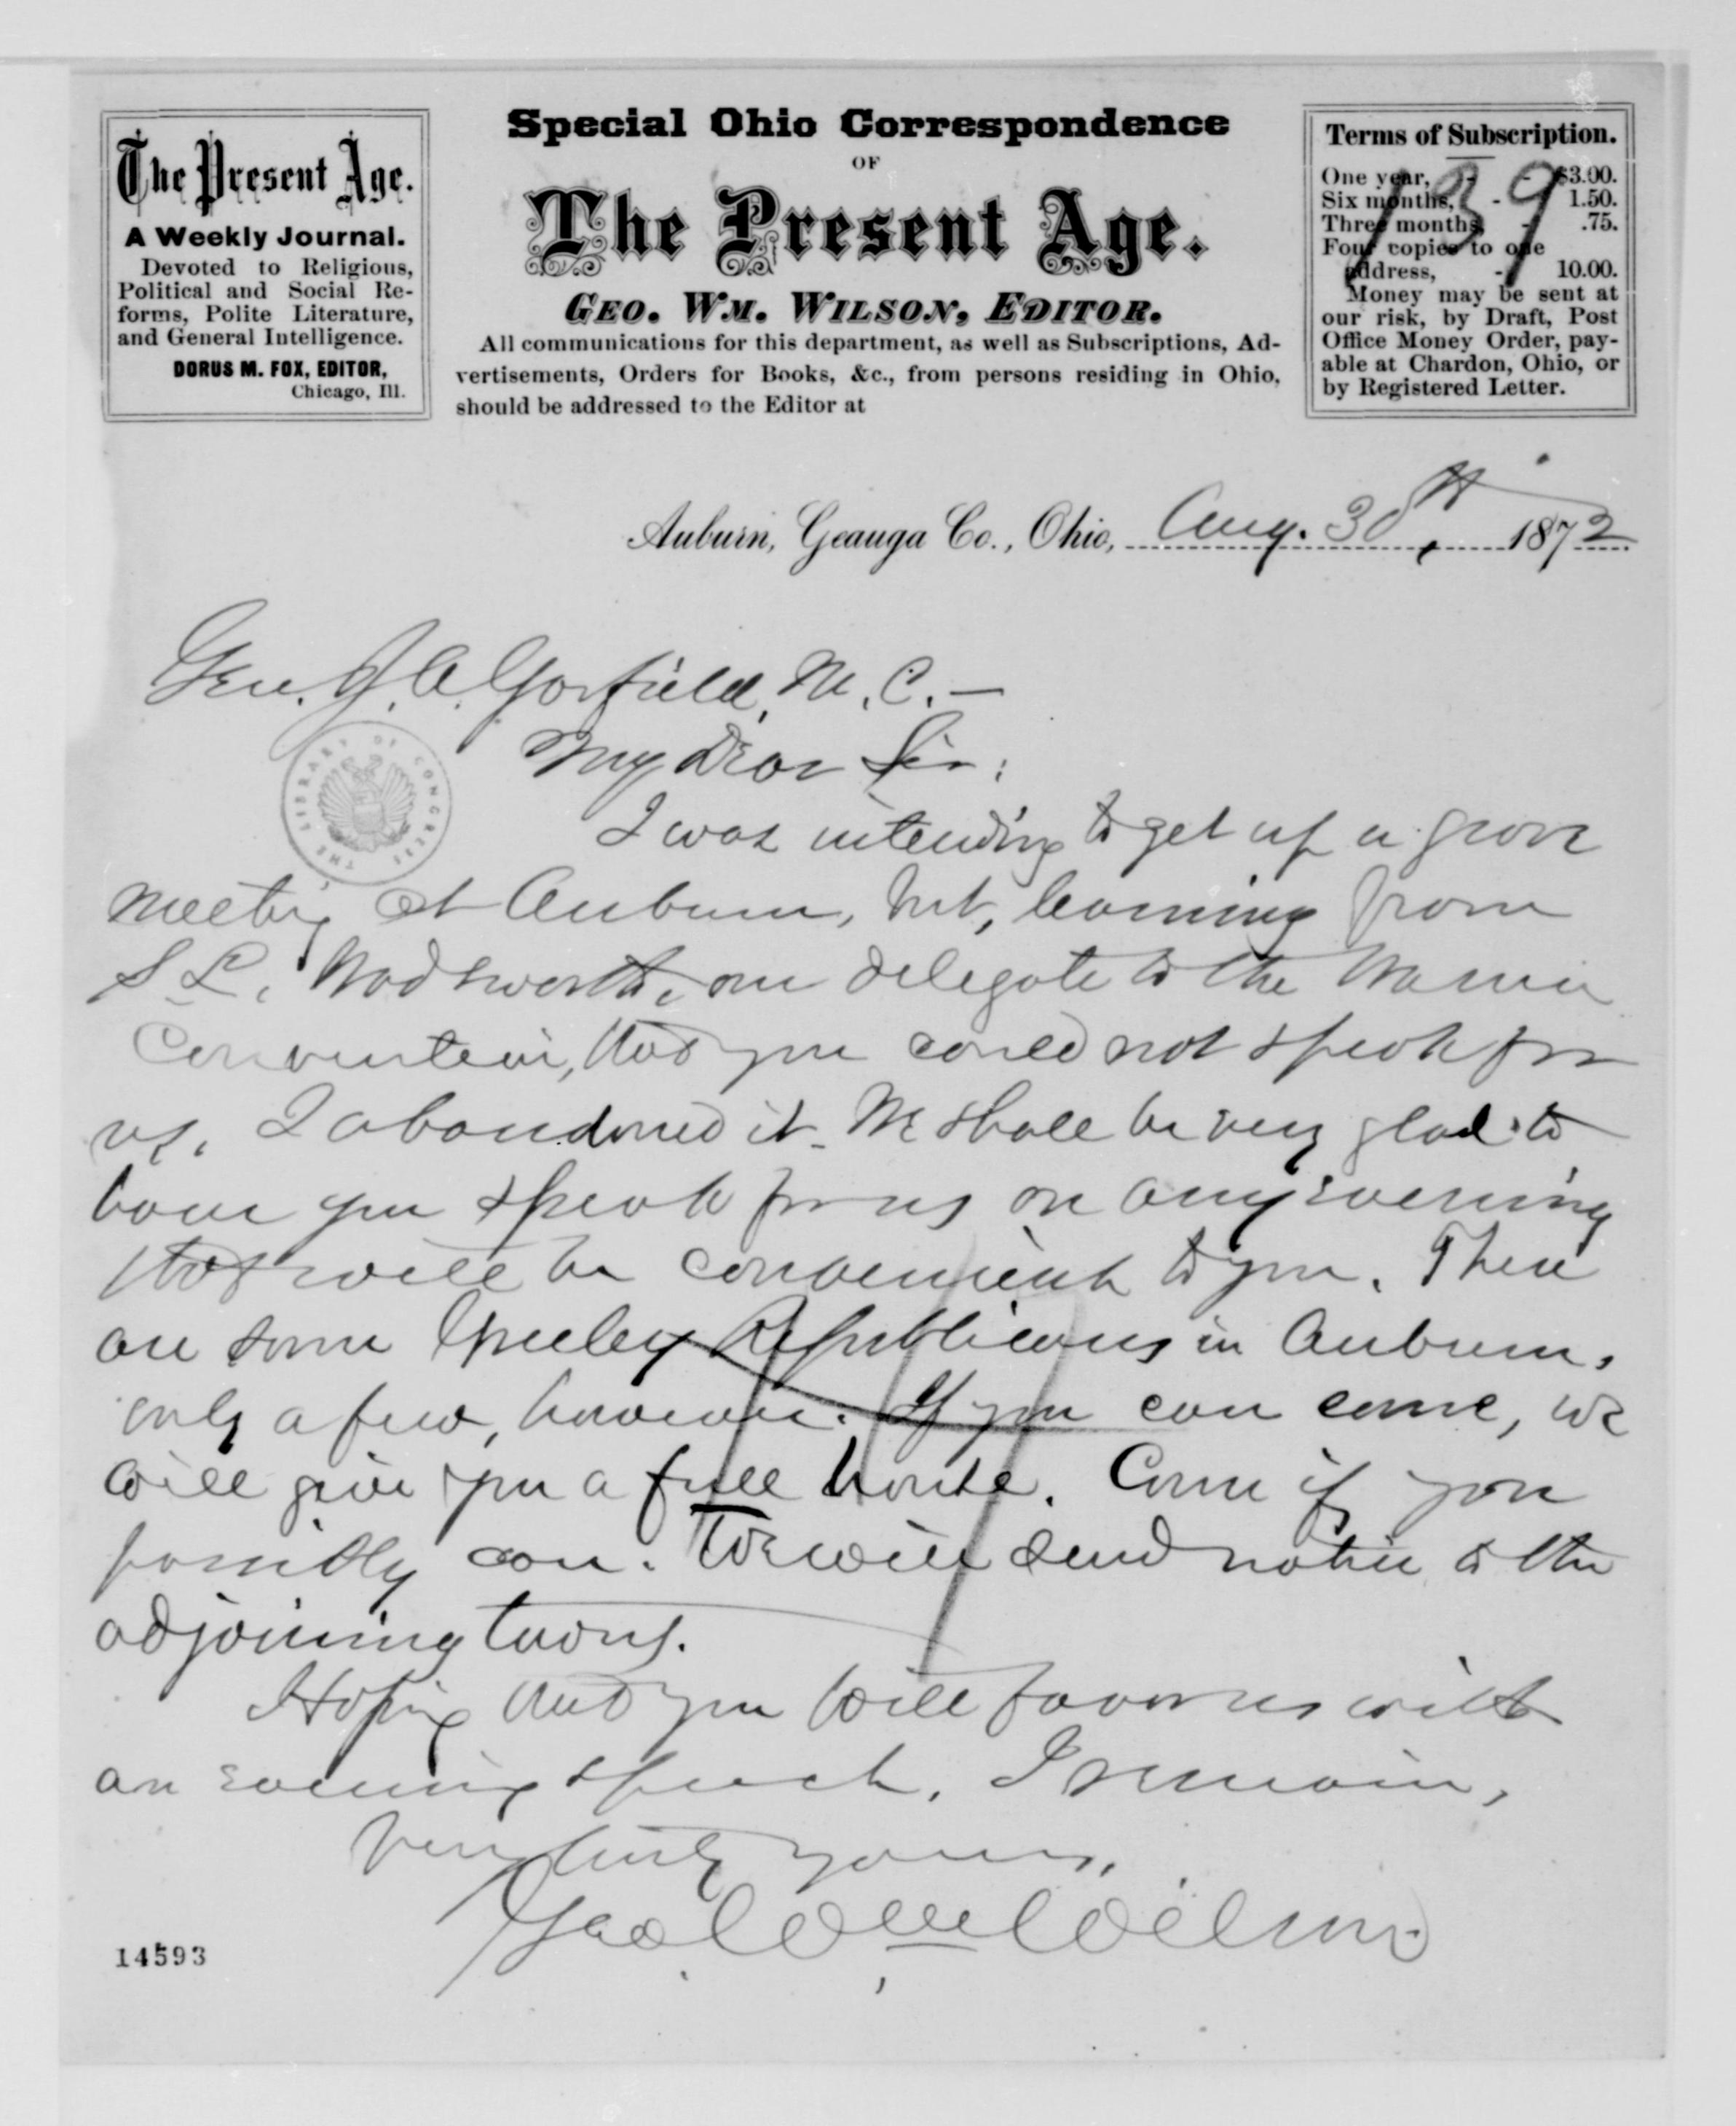 The Present Age.
A Weekly Journal.
Devoted to Religious,
Political and Social Re-
forms, Polite Literature,
and General Intelligence.
DORUS M. FOX, EDITOR,
Chicago, Ill.
Special Ohio Correspondence
OF
The Present Age.
GEO. WM. WILSON, EDITOR.
All communications for this department, as well as Subscriptions, Ad-
vertisements, Orders for Books, &c., from persons residing in Ohio,
should be addressed to the Editor at
Terms of Subscription.
One year, - - $3.00.
Six months, - 1.50.
Three months, - .75.
Four copies to one
address, - 10.00.
Money may be sent at
our risk, by Draft, Post
Office Money Order, pay-
able at Chardon, Ohio, or
by Registered Letter.
139
Auburn, Geauga Co., Ohio, Aug. 30th, 1872
Gen. J. A. Garfield, M. C. —
My Dear Sir:
THE LIBRARY OF CONGRESS
I was intending to get up a grove
meeting at Auburn, but, learning from
S. L. Wadsworth, our delegate to the Warren
Convention, that you could not speak for
us, I abandoned it. We shall be very glad to
have you speak for us on any evening
that will be convenient to you. There
are some Greeley Republicans in Auburn,
only a few, however. If you can come, we
will give you a full house. Come if you
possibly can. We will send notice to the
adjoining towns.
Hoping that you will favor us with
an evening speech, I remain,
Very truly yours,
Geo. Wm. Wilson
14593